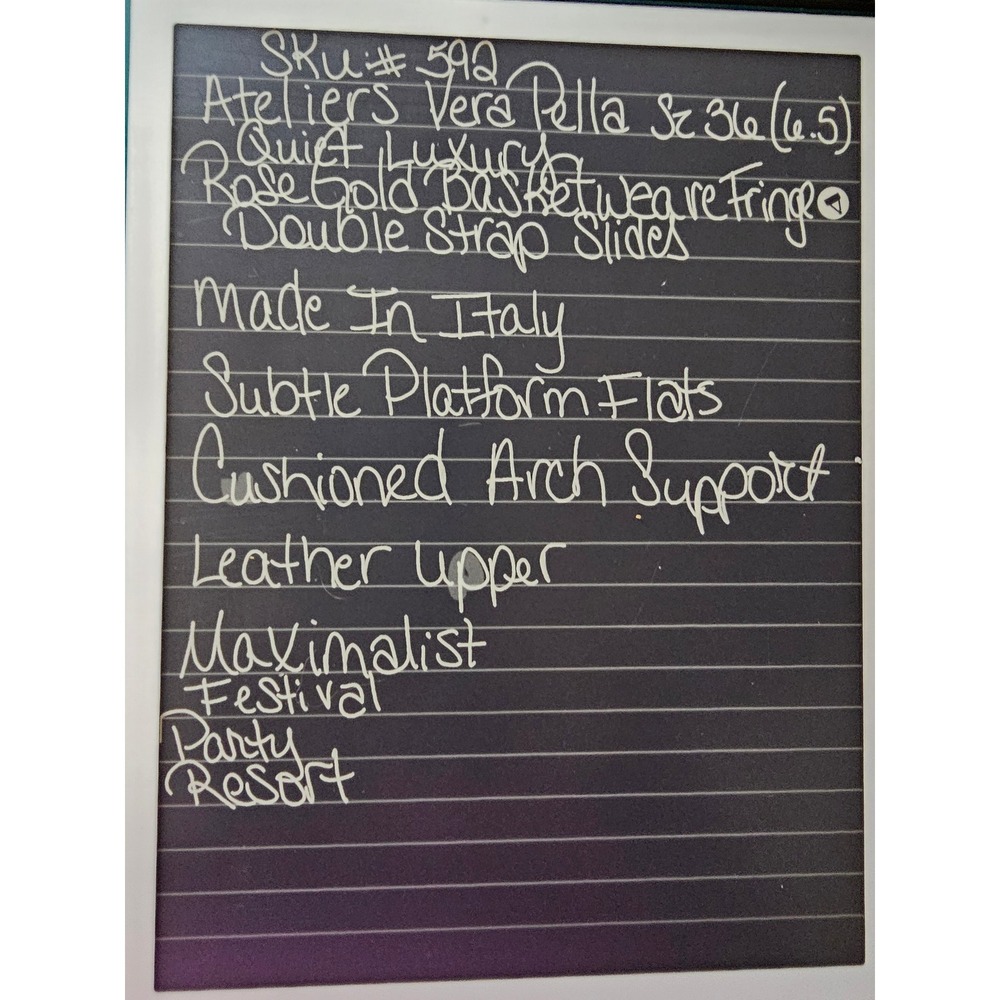 SKU:# 592
Ateliers Vera Pella Sz 36 (6.5)
Quiet Luxury
Rose Gold Basketweave Fringe
Double Strap Slides
Made In Italy
Subtle Platform Flats
Cushioned Arch Support
Leather Upper
Maximalist
Festival
Party
Resort